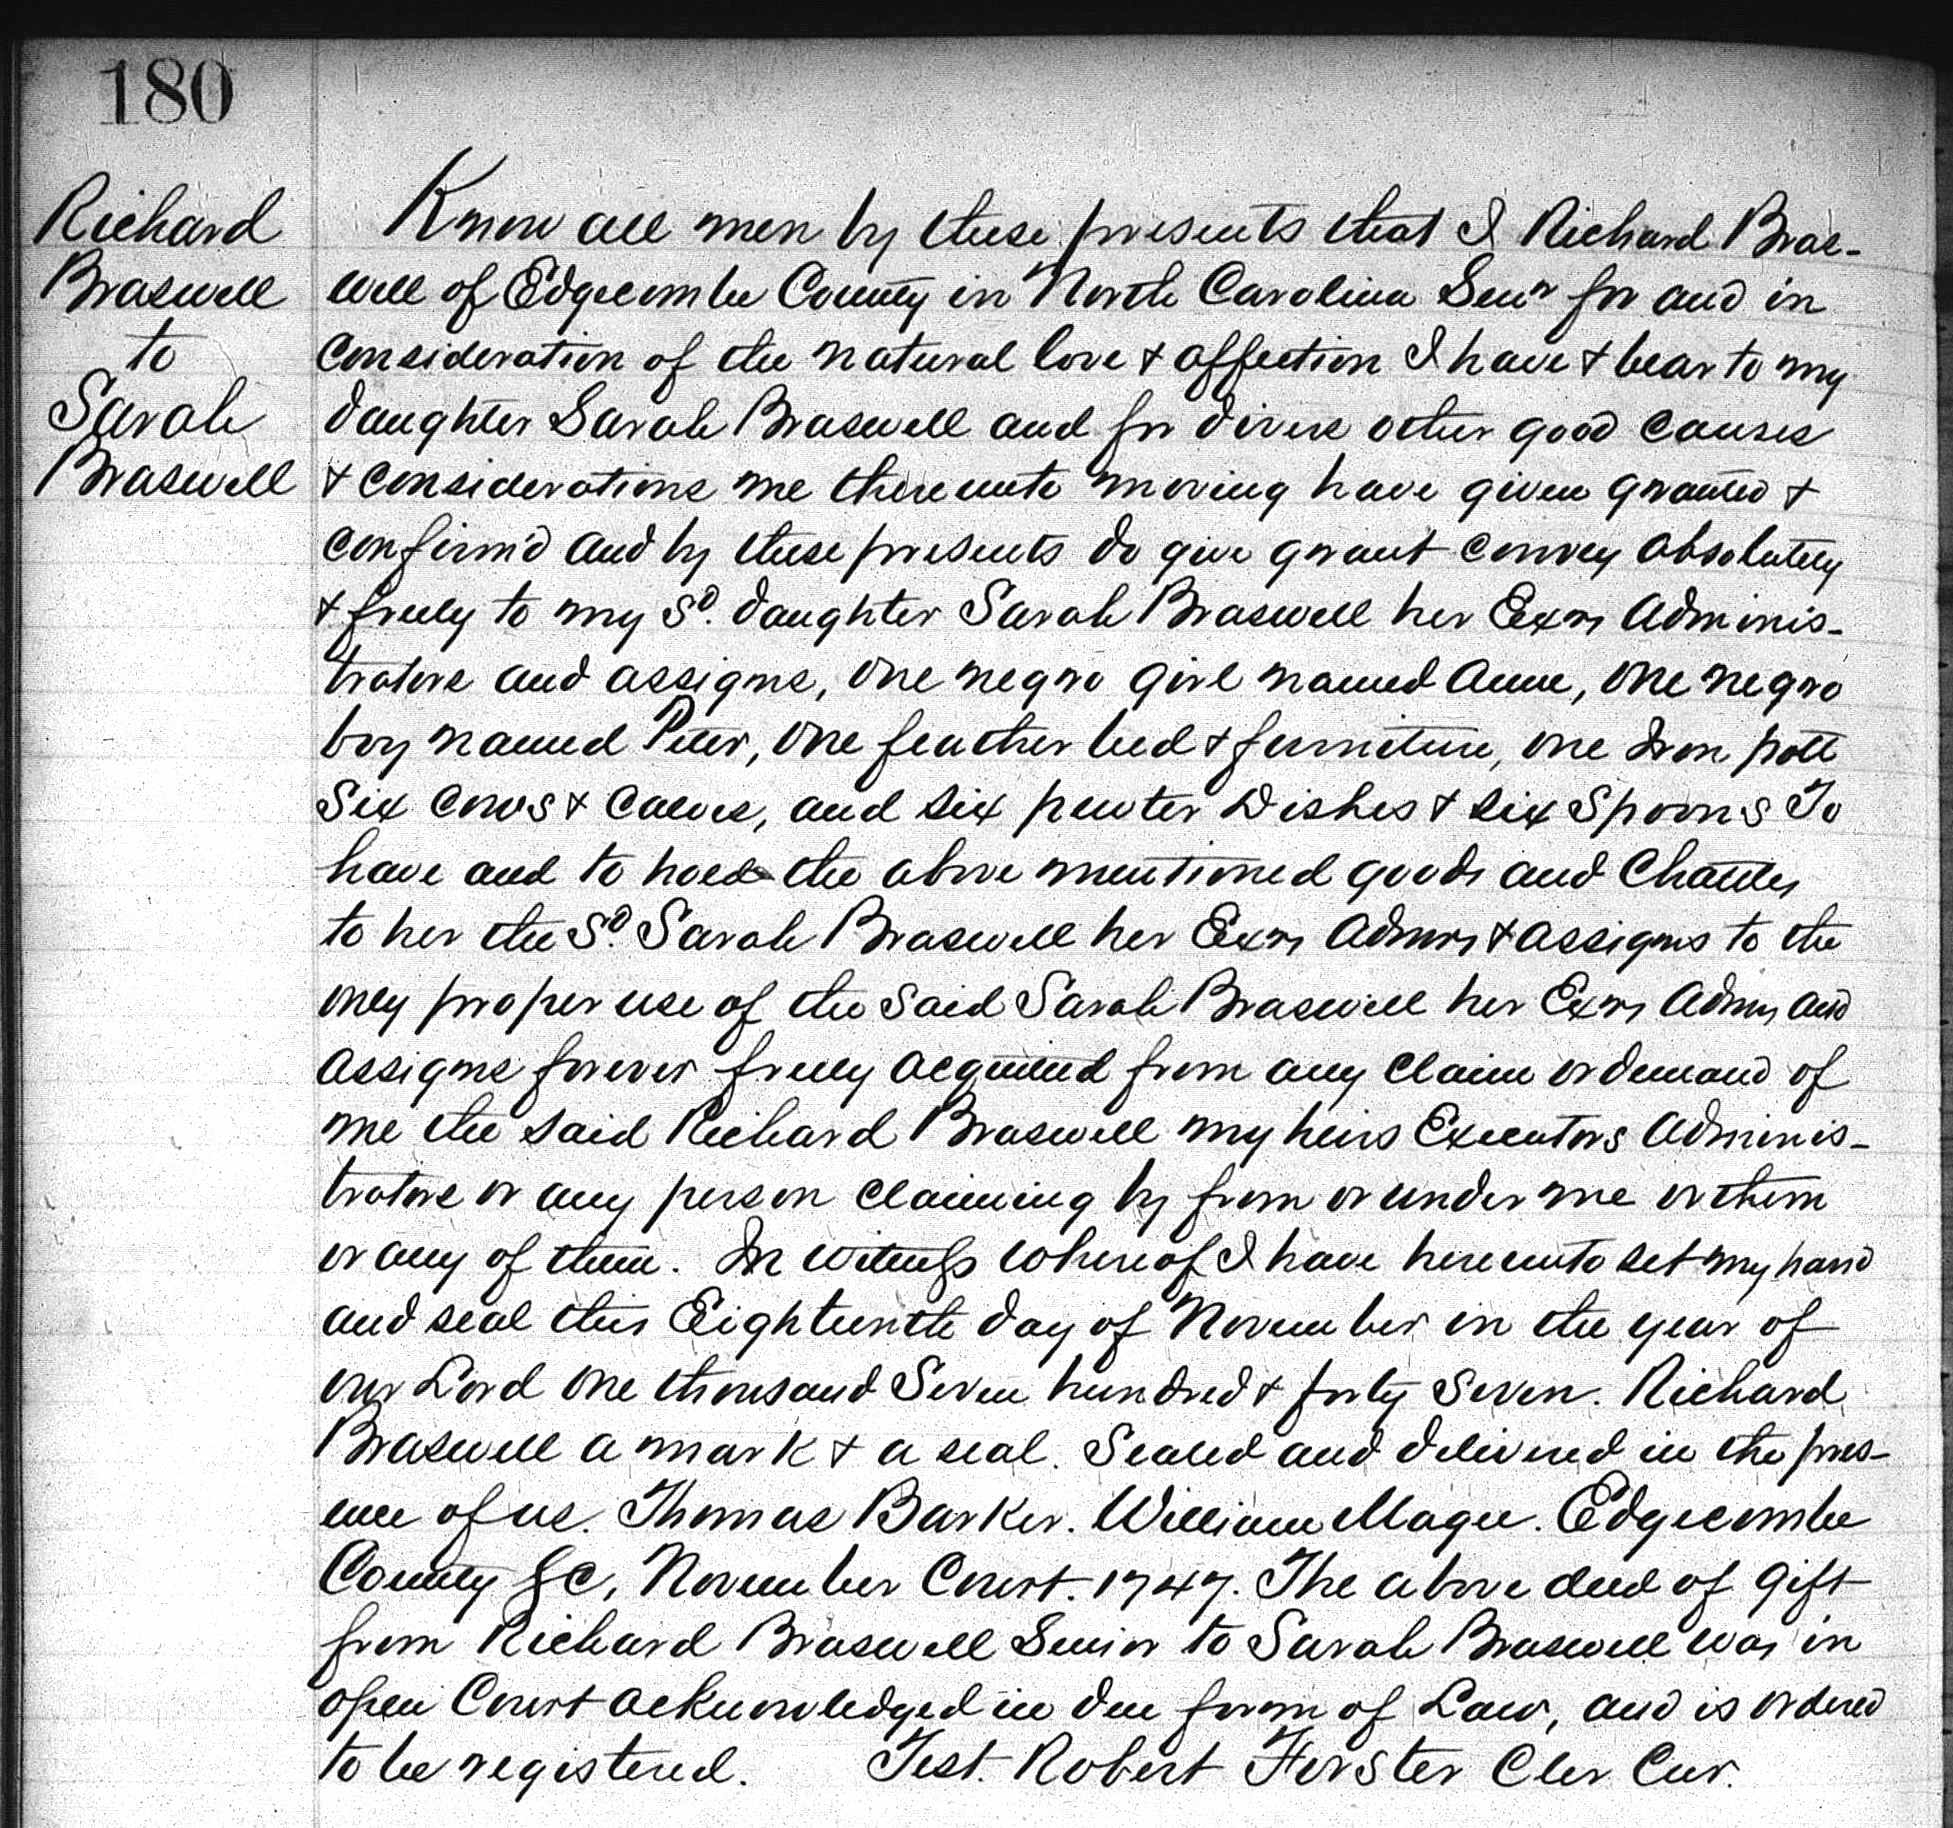 180
Richard
Braswell
to
Sarah
Braswell
Know all men by these presents that I Richard Bras-
well of Edgecombe County in North Carolina Senr for and in
consideration of the natural love & affection I have & bear to my
daughter Sarah Braswell and for divers other good causes
& considerations me thereunto moving have given granted &
confirm'd and by these presents do give grant convey absolutely
& freely to my Sd. daughter Sarah Braswell her Exrs Adminis-
trators and assigns, one negro girl named Anne, one negro
boy named Peter, one feather bed & furniture, one Iron pott
Six Cows & Calves, and six pewter Dishes & six Spoons To
have and to hold the above mentioned goods and Chattles
to her the Sd. Sarah Braswell her Exrs Admrs & assigns to the
only proper use of the said Sarah Braswell her Exrs Admrs and
assigns forever freely acquitted from any claim or demand of
me the said Richard Braswell my heirs Executors Adminis-
trators or any person claiming by from or under me or them
or any of them. In witness whereof I have hereunto set my hand
and seal this Eighteenth day of November in the year of
our Lord one thousand Seven hundred & forty Seven. Richard
Braswell a mark & a seal. Sealed and delivered in the pres-
ence of us. Thomas Barker. William Magee. Edgecombe
County Sc, November Court. 1747. The above deed of Gift
from Richard Braswell Senior to Sarah Braswell was in
open Court acknowledged in due form of Law, and is ordered
to be registered. Test. Robert Forster Cler Cur.